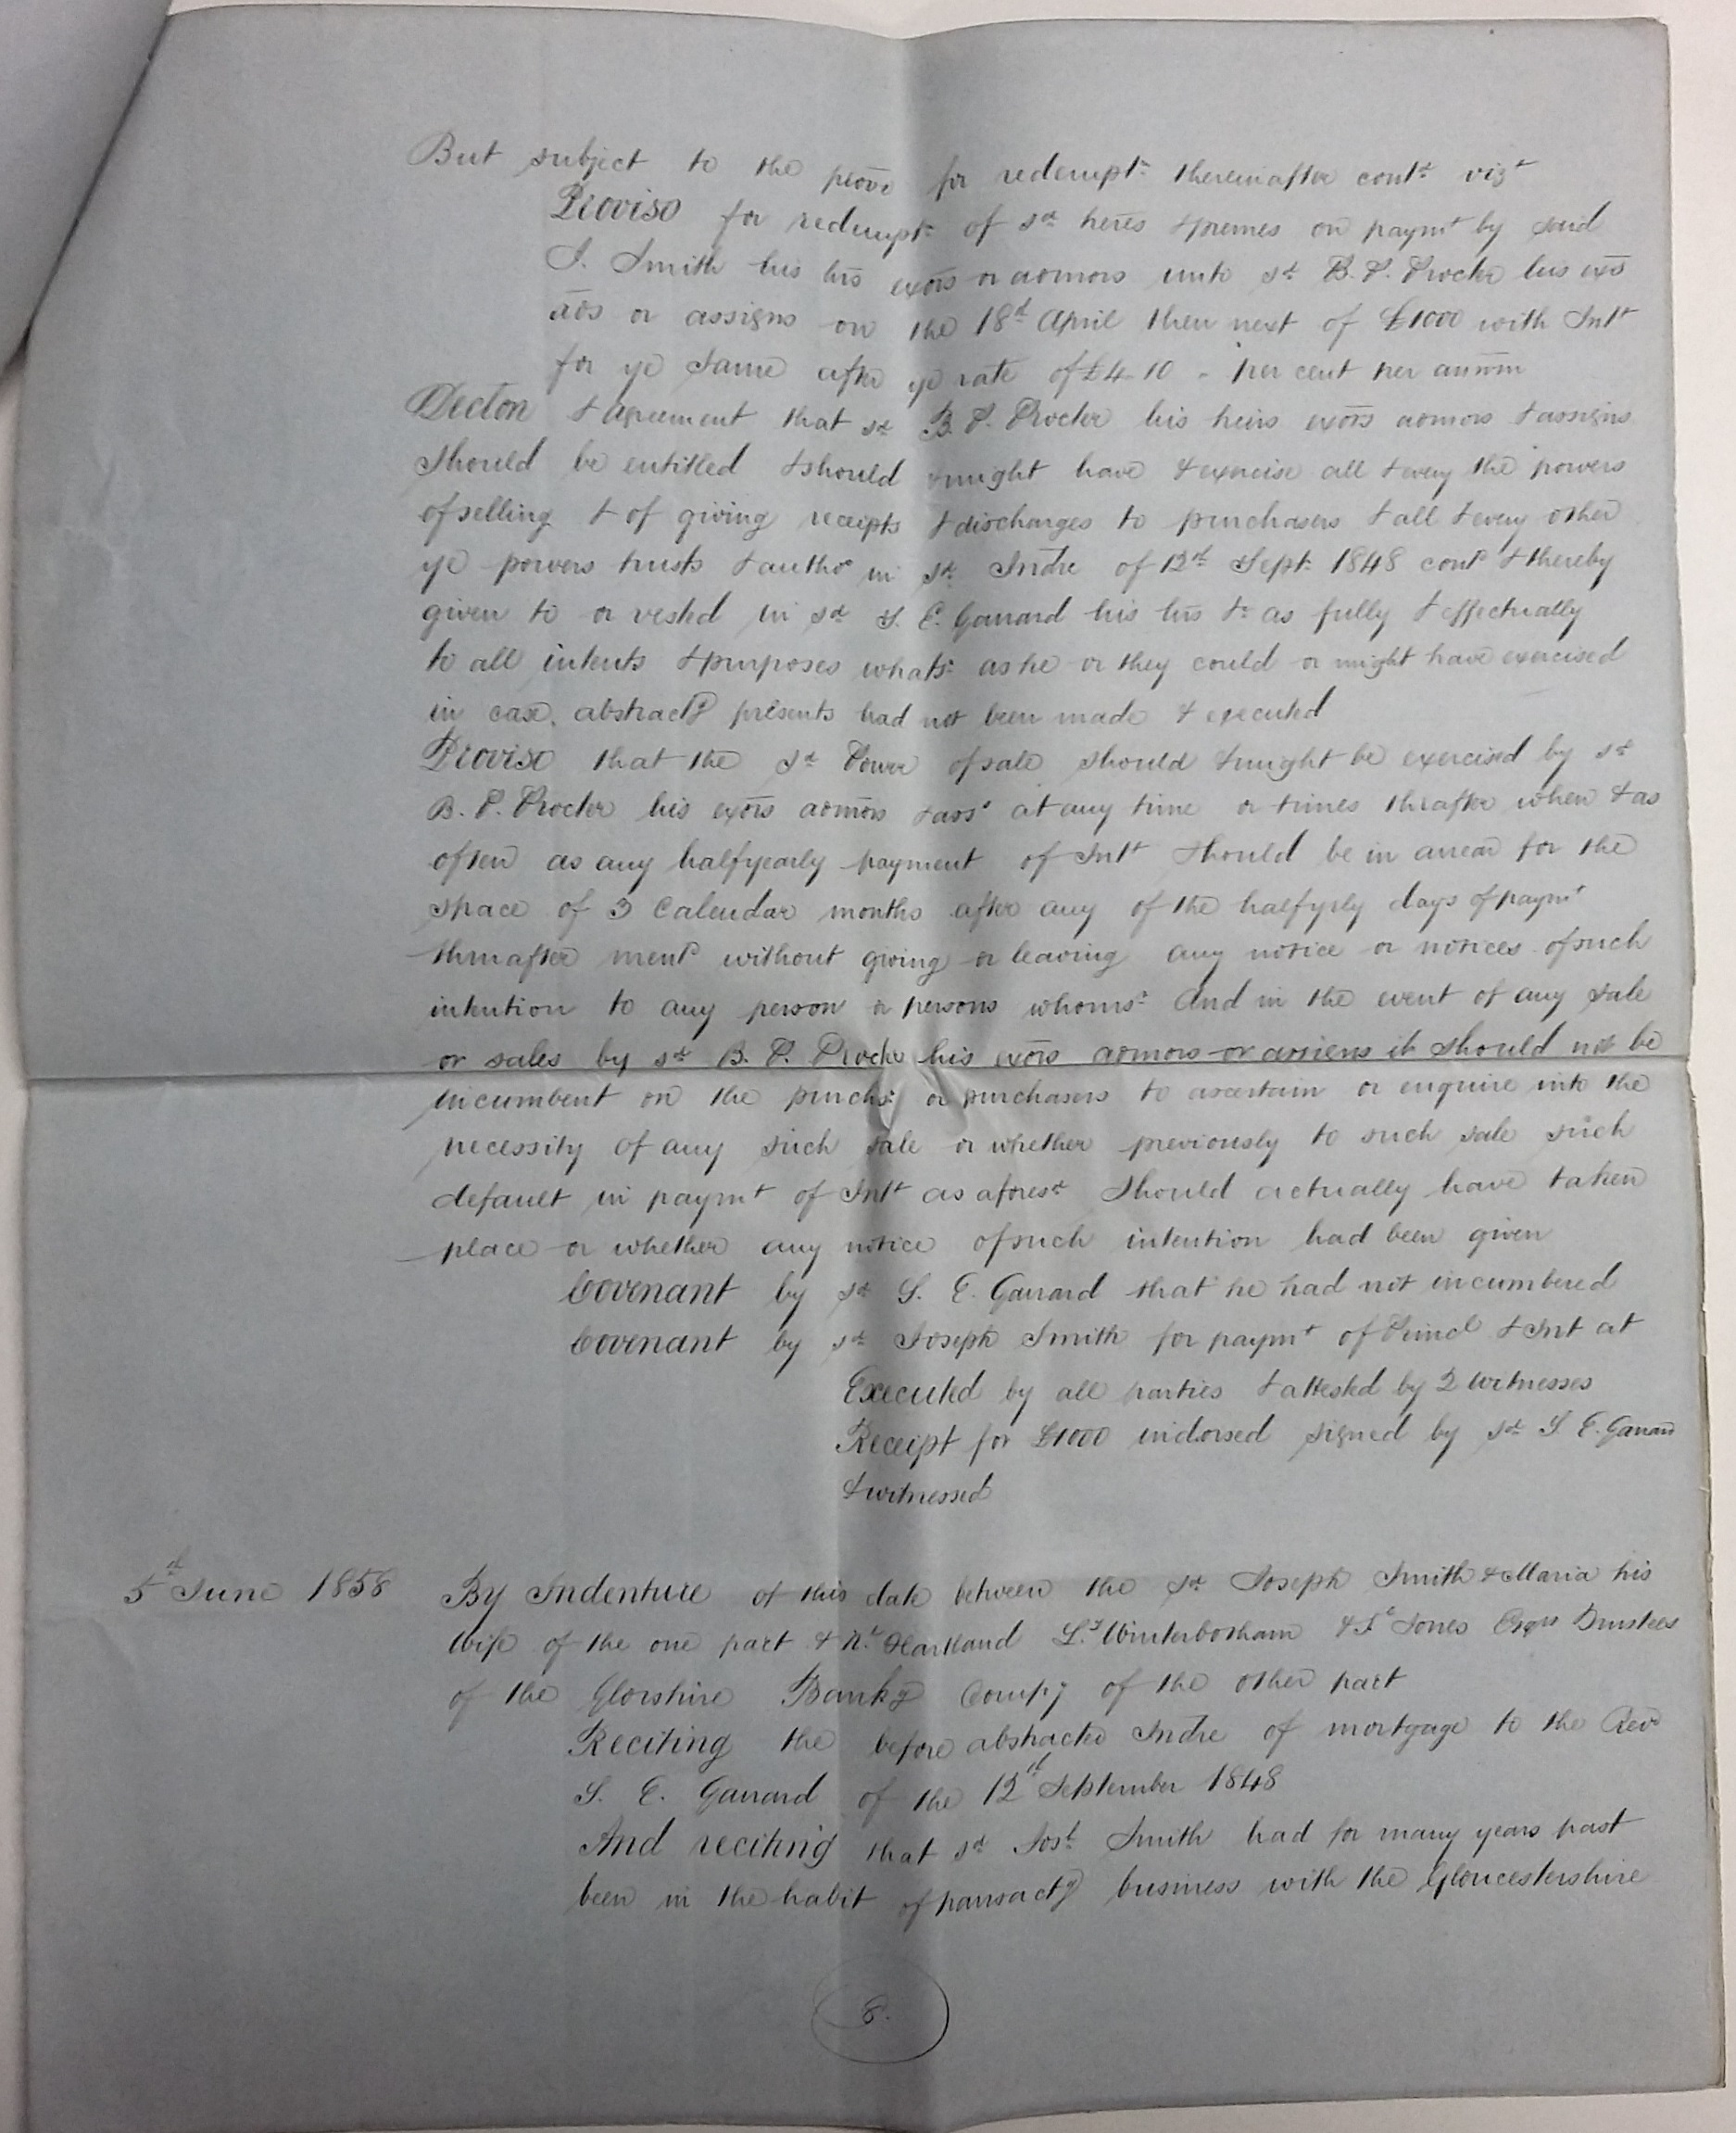 But subject to the provo for redempt: thereinafter contd vizt
Proviso for redempt: of sd heres & premes on paymt by said
J. Smith his hrs exors or admors unto sd B. P. Procter his exs
ads or assigns on the 18th April then next of £1000 with Intt
for ye same after ye rate of £4-10 - per cent per annum
Declon & agreement that sd B. P. Procter his heirs exors admors & assigns
should be entitled & should & might have & exercise all & every the powers
of selling & of giving receipts & discharges to purchasers & all & every other
ye powers trusts & authos in sd Indre of 12th Sept: 1848 contd & thereby
given to or vested in sd S. E. Garrard his hrs &c as fully & effectually
to all intents & purposes whats: as he or they could or might have exercised
in case abstractg presents had not been made & executed
Proviso that the sd Power of sale should & might be exercised by sd
B. P. Procter his exors admors & ass: at any time or times thrafter when & as
often as any halfyearly payment of Intt should be in arrear for the
space of 3 Calendar months after any of the halfyrly days of paymt
thrnafter mentd without giving or leaving any notice or notices of such
intention to any person or persons whoms: And in the event of any sale
or sales by sd B. P. Procter his exors admors or assigns it should not be
incumbent on the purchr: or purchasers to ascertain or enquire into the
necessity of any such sale or whether previously to such sale such
default in paymt of Intt as aforesd should actually have taken
place or whether any notice of such intention had been given
Covenant by sd S. E. Garrard that he had not incumbered
Covenant by sd Joseph Smith for paymt of Princl & Int at
Executed by all parties & attested by 2 witnesses
Receipt for £1000 indorsed signed by sd S. E. Garrard
& witnessed
5th June 1858 By Indenture of this date between the sd Joseph Smith & Maria his
Wife of the one part & Nl Hartland Ly Winterbotham & Jones Esqrs Trustees
of the Glorshire Bankg Compy of the other part
Reciting the before abstracted Indre of mortgage to the Revd
S. E. Garrard of the 12th September 1848
And reciting that sd Josh Smith had for many years past
been in the habit of transactg business with the Gloucestershire
8.